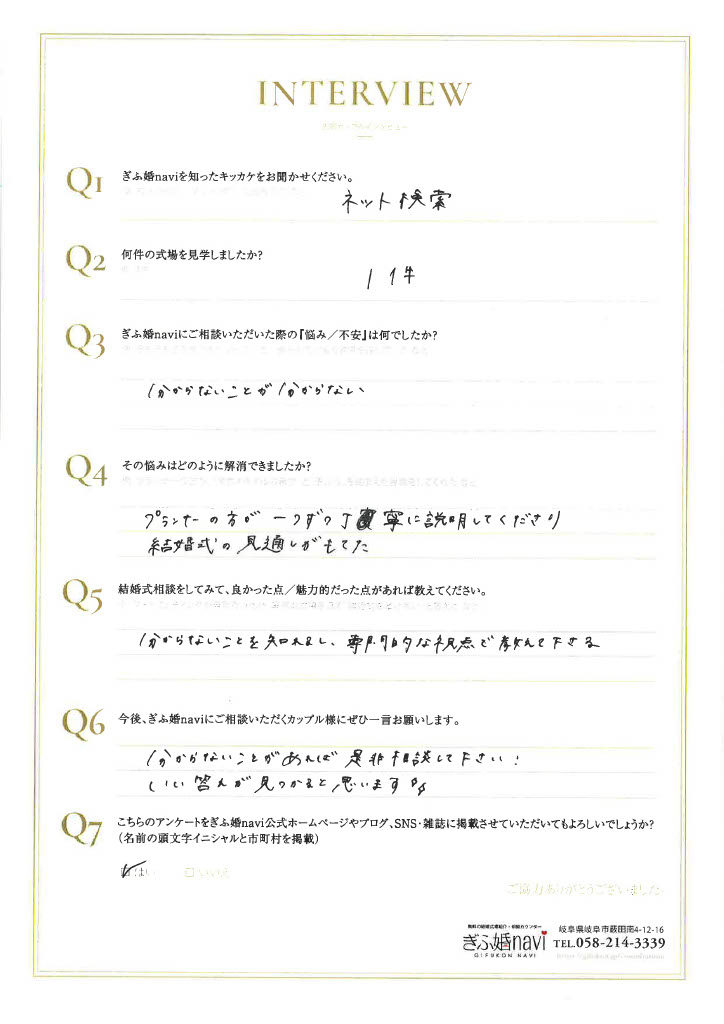 INTERVIEW
Q1 ぎふ婚naviを知ったキッカケをお聞かせください。
ネット検索
Q2 何件の式場を見学しましたか?
1件
Q3 ぎふ婚naviにご相談いただいた際の『悩み/不安』は何でしたか?
分からないことが分からない
Q4 その悩みはどのように解消できましたか?
プランナーの方が一つずつ丁寧に説明してくださり
結婚式の見通しがもてた
Q5 結婚式相談をしてみて、良かった点/魅力的だった点があれば教えてください。
分からないことを知れるし、専門的な視点で教えて下さる
Q6 今後、ぎふ婚naviにご相談いただくカップル様にぜひ一言お願いします。
分からないことがあれば是非相談して下さい!
いい答えが見つかると思います
Q7 こちらのアンケートをぎふ婚navi公式ホームページやブログ、SNS・雑誌に掲載させていただいてもよろしいでしょうか?
(名前の頭文字イニシャルと市町村を掲載)
はい □いいえ
ご協力ありがとうございました
ぎふ婚navi
GIFUKON NAVI
岐阜県岐阜市薮田南4-12-16
TEL.058-214-3339